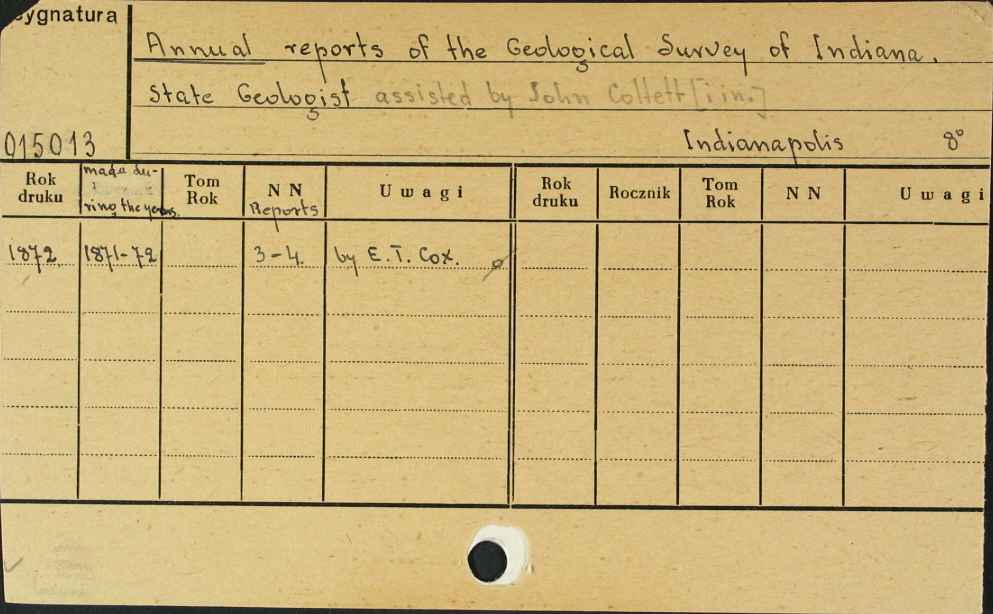 Sygnatura
Annual reports of the Geological Survey of Indiana.
State Geologist assisted by John Collett [i in.]
015013
Indianapolis 8°
Rok druku made during the years Tom Rok NN Reports Uwagi Rok druku Rocznik Tom Rok NN Uwagi
1872 1871-72 3-4. by E.T. Cox.